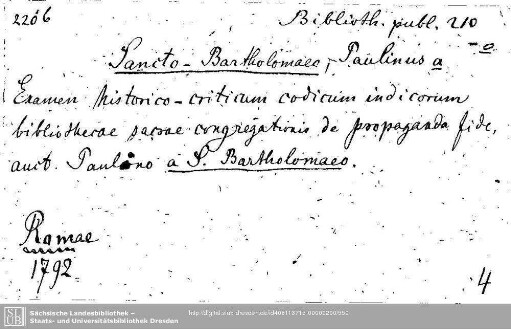 2206
Biblioth. publ. 210
Sancto-Bartholomaeo, Paulinus a
Examen historico-criticum codicum indicorum
bibliothecae sacrae congregationis de propaganda fide,
auct. Paulino a S. Bartholomaeo.
Romae
1792
4
Sächsische Landesbibliothek –
Staats- und Universitätsbibliothek Dresden